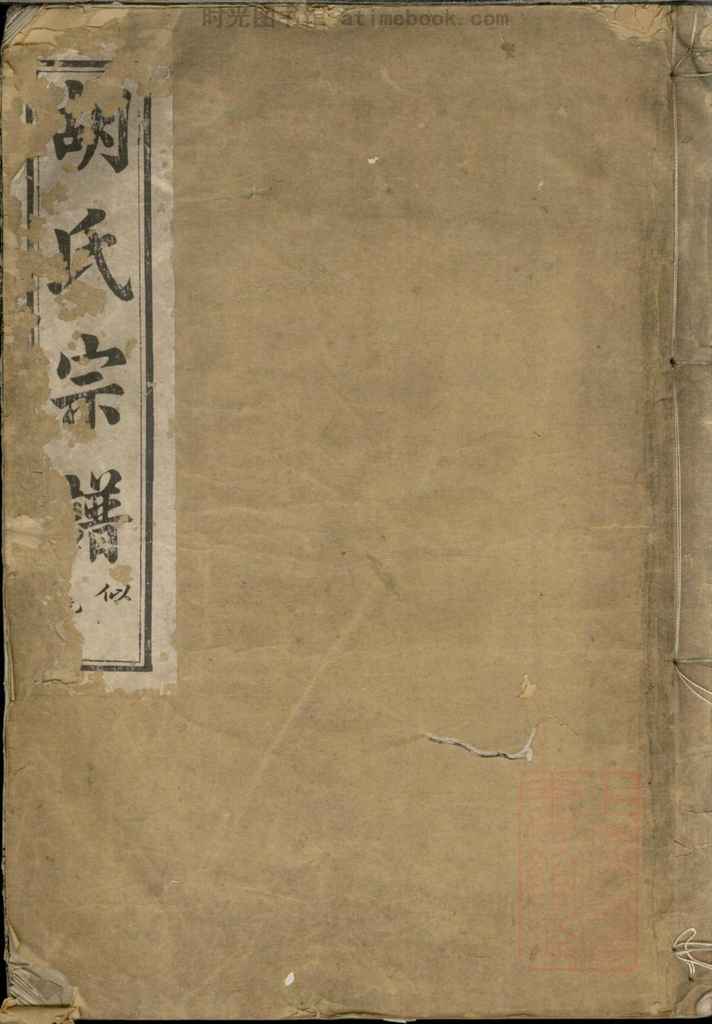 时光图书馆 atimebook.com
胡氏宗譜
似